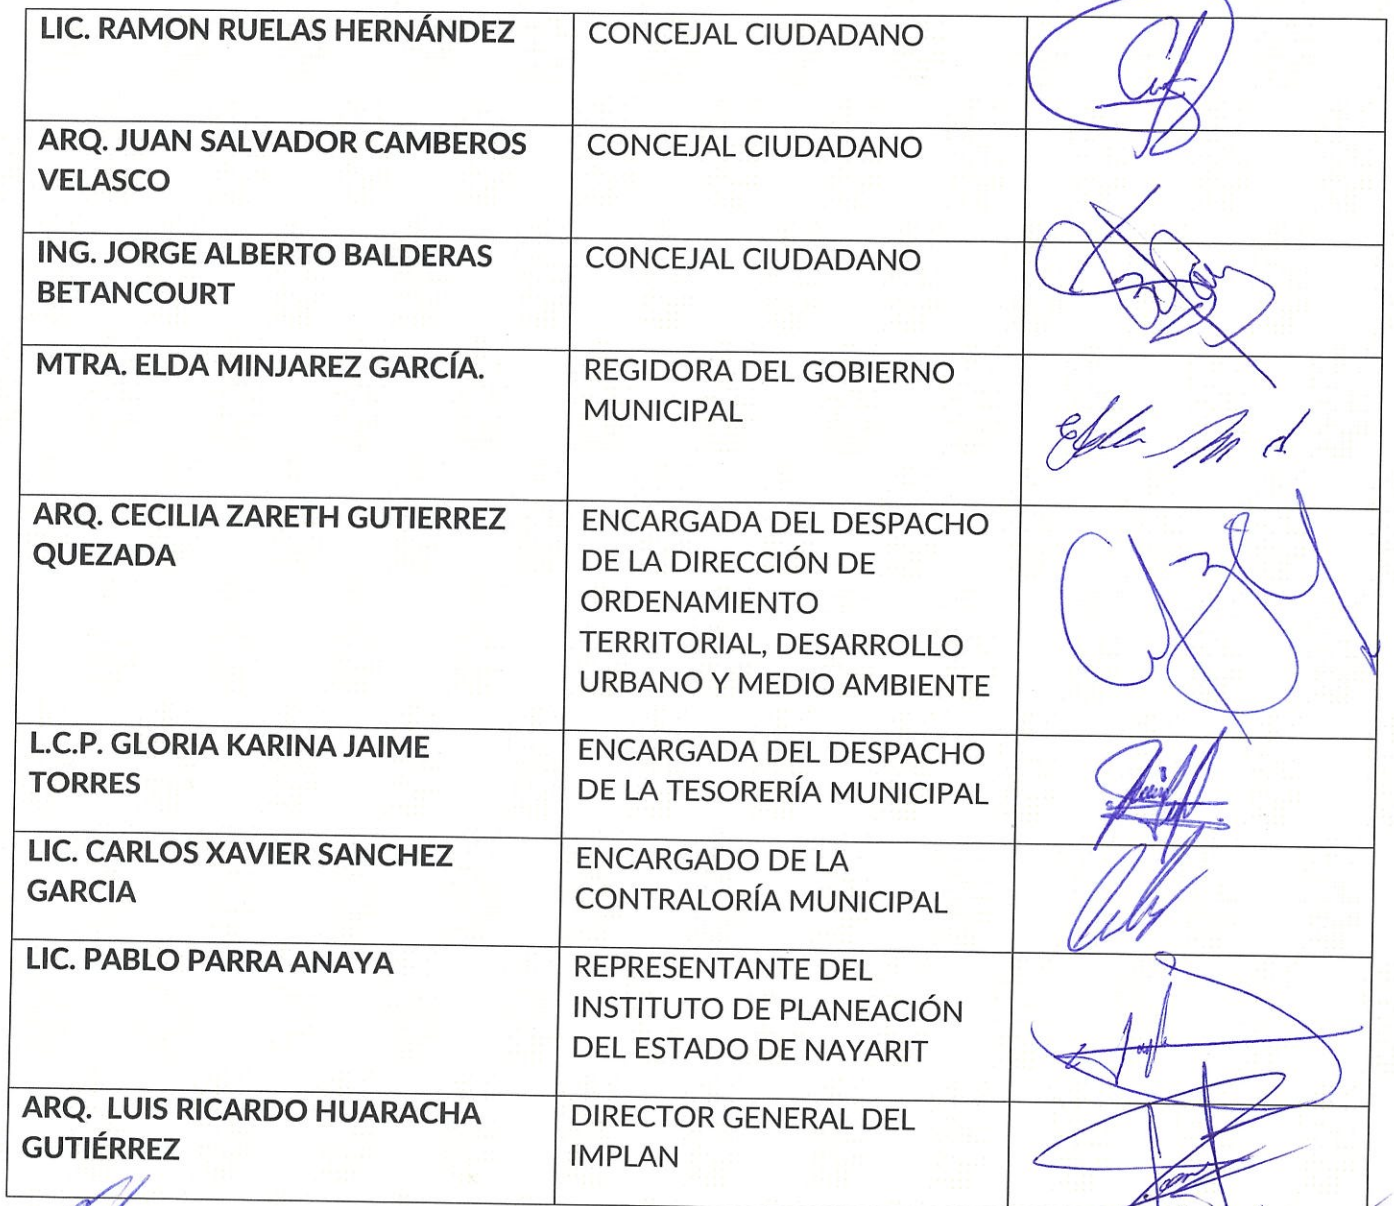 LIC. RAMON RUELAS HERNÁNDEZ
CONCEJAL CIUDADANO
ARQ. JUAN SALVADOR CAMBEROS
VELASCO
CONCEJAL CIUDADANO
ING. JORGE ALBERTO BALDERAS
BETANCOURT
CONCEJAL CIUDADANO
MTRA. ELDA MINJAREZ GARCÍA.
REGIDORA DEL GOBIERNO
MUNICIPAL
ARQ. CECILIA ZARETH GUTIERREZ
QUEZADA
ENCARGADA DEL DESPACHO
DE LA DIRECCIÓN DE
ORDENAMIENTO
TERRITORIAL, DESARROLLO
URBANO Y MEDIO AMBIENTE
L.C.P. GLORIA KARINA JAIME
TORRES
ENCARGADA DEL DESPACHO
DE LA TESORERÍA MUNICIPAL
LIC. CARLOS XAVIER SANCHEZ
GARCIA
ENCARGADO DE LA
CONTRALORÍA MUNICIPAL
LIC. PABLO PARRA ANAYA
REPRESENTANTE DEL
INSTITUTO DE PLANEACIÓN
DEL ESTADO DE NAYARIT
ARQ. LUIS RICARDO HUARACHA
GUTIÉRREZ
DIRECTOR GENERAL DEL
IMPLAN